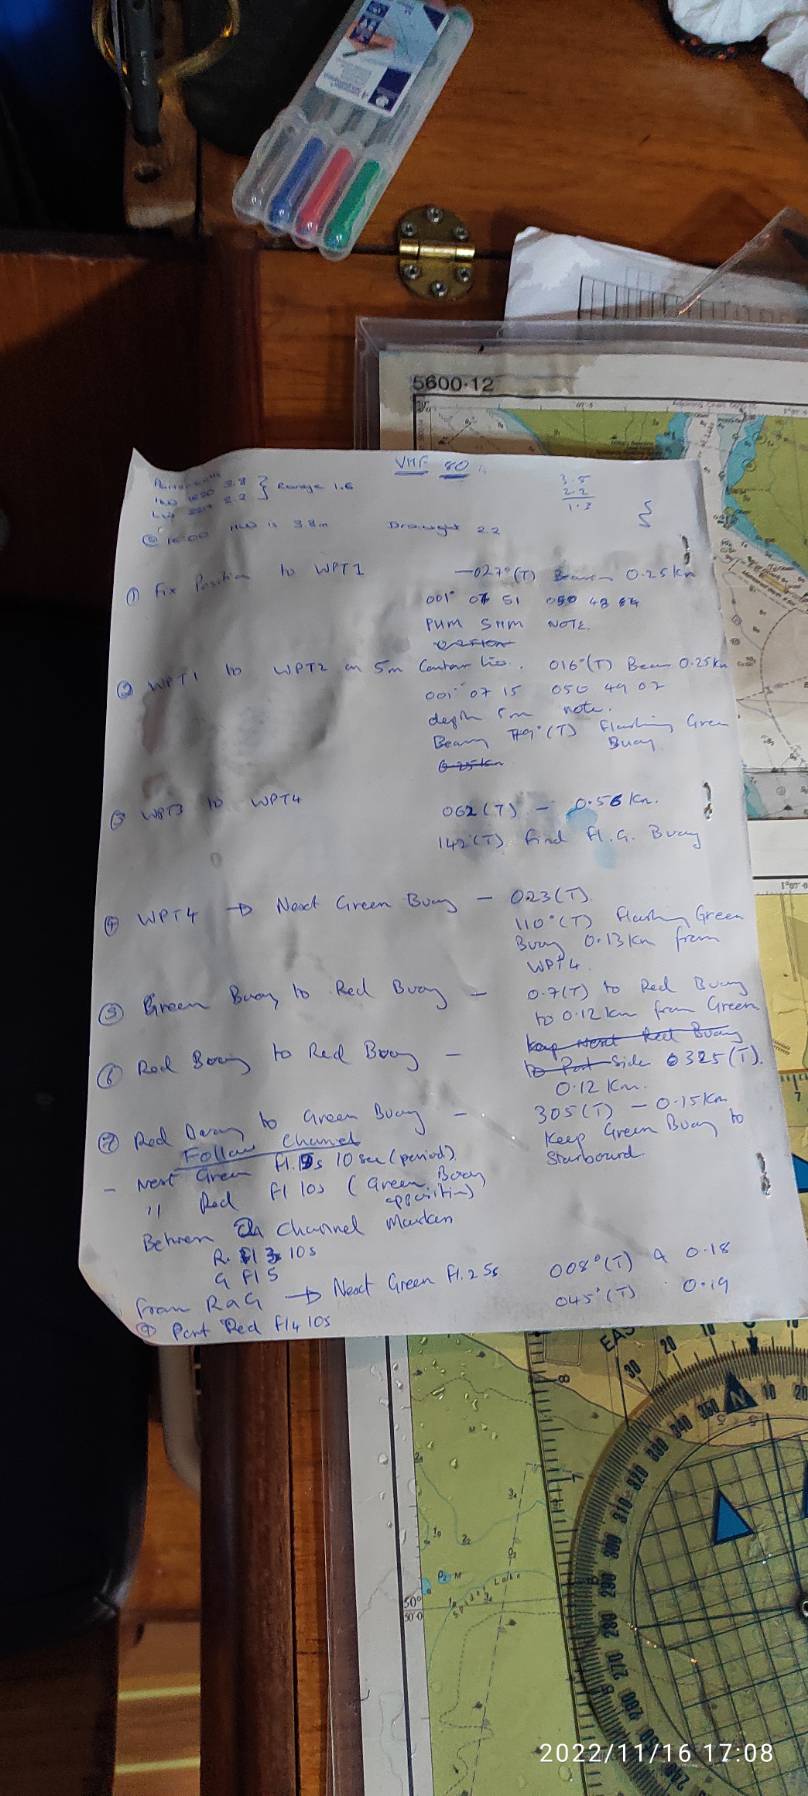 5600·12
VHF 80
HW 1650 3.8 } Range 1.6
2.2
3.5
2.2
1.3
@ 16:00 HW is 3.8m Draught 2.2
① Fix Position to WPT1 — 027°(T) 0.25km
001° 07 51 050 48 64
PHM SHM NOTE.
② WPT1 to WPT2 on 5m Contour line. 016°(T) Bear 0.25km
001° 07 15 050 49 07
depth 5m note.
Bearing 79°(T) Flashing Green Buoy
0.25km
③ WPT3 to WPT4 062(T) — 0.56 km.
142°(T) find Fl. G. Buoy
④ WPT4 → Next Green Buoy — 023(T).
110°(T) Flashing Green
Buoy 0.13km from
WPT4.
⑤ Green Buoy to Red Buoy — 0.7(T) to Red Buoy
to 0.12km from Green
⑥ Red Buoy to Red Buoy — Keep Next Red Buoy
to Port Side 0325(T).
0.12 km.
⑦ Red Buoy to Green Buoy — 305(T) — 0.15km
Keep Green Buoy to
Starboard
Follow Channel
- Next Green Fl. 10 sec (period)
" Red Fl 10s (Green Buoy
opposition)
Between Channel Markers
R. Fl 3 10s
G Fl 5
from R & G → Next Green Fl. 2 5s 008°(T) 0.18
Port Red Fl4 10s 045°(T) 0.19
EAS
30 20 10
N
10 20
350 340 330 320 310 300 290 280 270 260 250 240
50°
2022/11/16 17:08